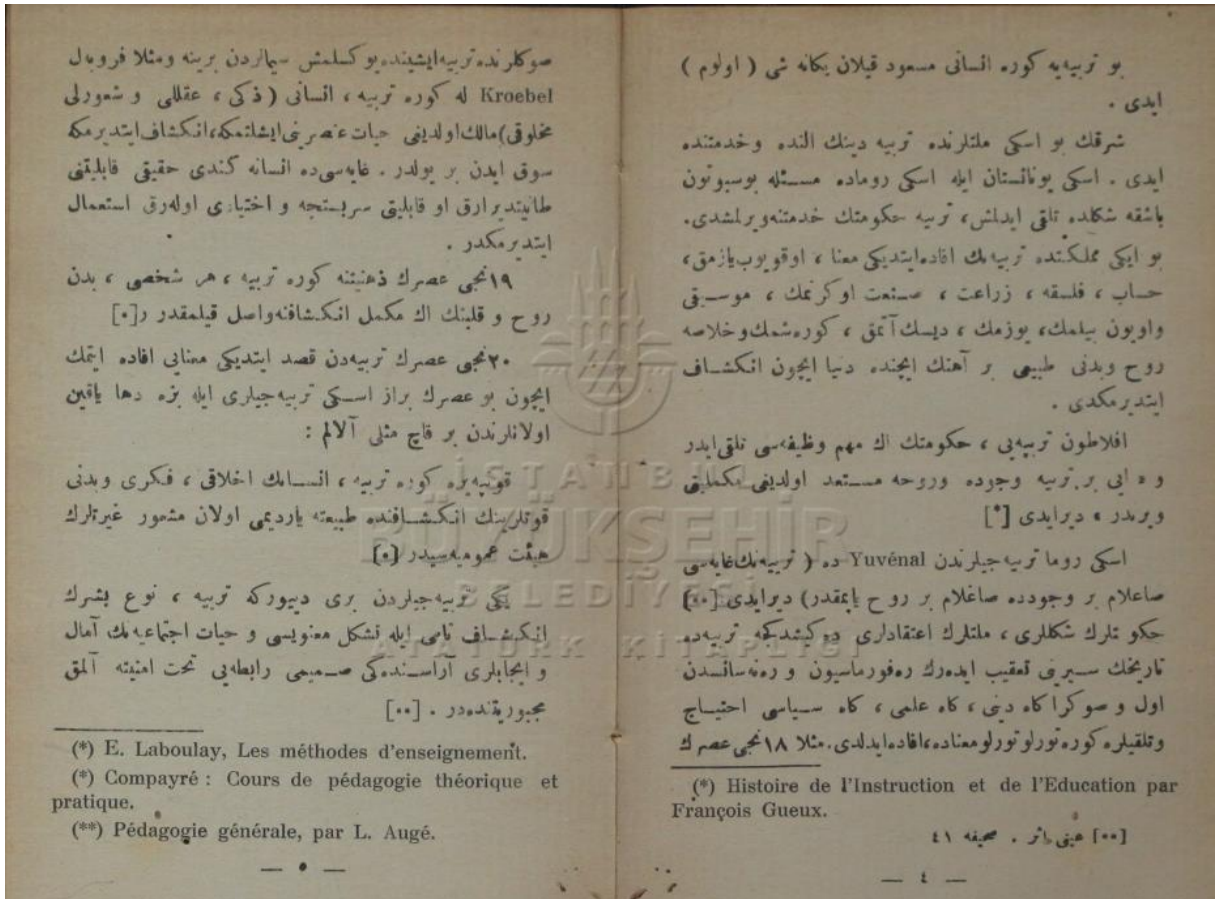 بو تربیه‌یه كوره انسانی مسعود قیلان یكانه شی ( اولوم )
ایدی .
شرقك بو اسكی ملتلرنده تربیه دینك النده وخدمتنده
ایدی . اسكی یونانستان ایله اسكی روماده مسئله بوسبوتون
باشقه شكلده تلقی ایدلمش، تربیه حكومتك خدمتنه‌ویرلمشدی.
بو ایكی مملكتده تربیه‌نك افاده‌ایتدیكی معنا ، اوقویوب‌یازمق،
حساب ، فلسفه ، زراعت ، صنعت اوكرنمك ، موسیقی
واویون بیلمك، یوزمك ، دیسك آتمق ، كوره‌شمك‌وخلاصه
روح وبدنی طبیعی بر آهنك ایچنده دنیا ایچون انكشاف
ایتدیرمكدی .
افلاطون تربیه‌یی ، حكومتك اك مهم وظیفه‌سی تلقی‌ایدر
و « ایی بر تربیه وجوده وروحه مستعد اولدیغی مكملیتی
ویرمدر » دیرایدی [*]
اسكی روما تربیه‌جیلرندن Yuvénal ده ( تربیه‌نك‌غایه‌سی
صاغلام بر وجودده صاغلام بر روح یاپمقدر) دیرایدی [**]
حكومتلرك شكللری ، ملتلرك اعتقاداری ده‌كیشدكجه تربیه‌ده
تاریخك سیرینی تعقیب ایده‌رك ره‌فورماسیون و رونه‌سانسدن
اول و صوكرا كاه دینی ، كاه علمی ، كاه سیاسی احتیاج
وتلقیلره كوره تورلو تورلومعناده،افاده‌ایدلدی. مثلا ۱۸نجی عصرك
(*) Histoire de l'Instruction et de l'Education par
François Gueux.
[**] عینی اثر . صحیفه ٤١
— ٤ —
صوكلرنده تربیه‌ایشینده‌یوكسلمش سیمالردن برینه ومثلا فروبال
Kroebel له كوره تربیه ، انسانی ( ذكی ، عقللی و شعورلی
مخلوقی)مالك‌اولدیغی حیات عنصرینی‌ایشلتمكه،انكشاف‌ایتدیرمكه
سوق ایدن بر یولدر . غایه‌سی‌ده انسانه كندی حقیقی قابلیتنی
طانیتدیرارق او قابلیتی سربستجه و اختیاری اوله‌رق استعمال
ایتدیرمكدر .
۱۹نجی عصرك ذهنیتنه كوره تربیه ، هر شخصی ، بدن
روح و قلبنك اك مكمل انكشافنه‌واصل قیلمقدر [*]
۲۰نجی عصرك تربیه‌دن قصد ایتدیكی معنایی افاده ایتمك
ایچون بو عصرك براز اسكی تربیه‌جیلری ایله بزه دها یاقین
اولانلرندن بر قاچ مثلی آلالم :
قونپه‌یره كوره تربیه ، انسانك اخلاقی ، فكری وبدنی
قوتلرینك انكشافنده طبیعته یاردیمی اولان مشعور غیرتلرك
هیئت عمومیه‌سیدر [*]
یكی تربیه‌جیلردن بری دییوركه تربیه ، نوع بشرك
انكشاف تامی ایله تشكل معنویسی و حیات اجتماعیه‌نك آمال
و ایجابلری آراسنده‌كی صمیمی رابطه‌یی تحت امنیته آلمق
مجبوریتنده‌در . [**]
(*) E. Laboulay, Les méthodes d'enseignement.
(*) Compayré : Cours de pédagogie théorique et
pratique.
(**) Pédagogie générale, par L. Augé.
— ٥ —
İSTANBUL
BÜYÜKŞEHİR
BELEDİYESİ
ATATÜRK KİTAPLIĞI